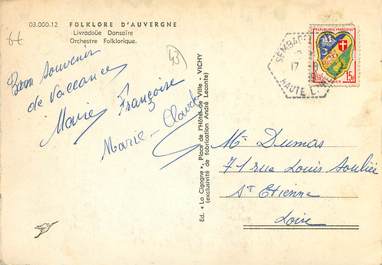 03.000.12 FOLKLORE D'AUVERGNE
Livradoüe Dansaïre
Orchestre Folklorique.
45
Bon souvenir
de Vacances
Marie Françoise
Marie-Claude
Ed. « La Cigogne », Place de l'Hôtel de Ville - VICHY
(exclusivité de fabrication André Leconte)
17
HAUTE L
15F
Mr Dumas
71 rue Louis Soulié
St Etienne
Loire